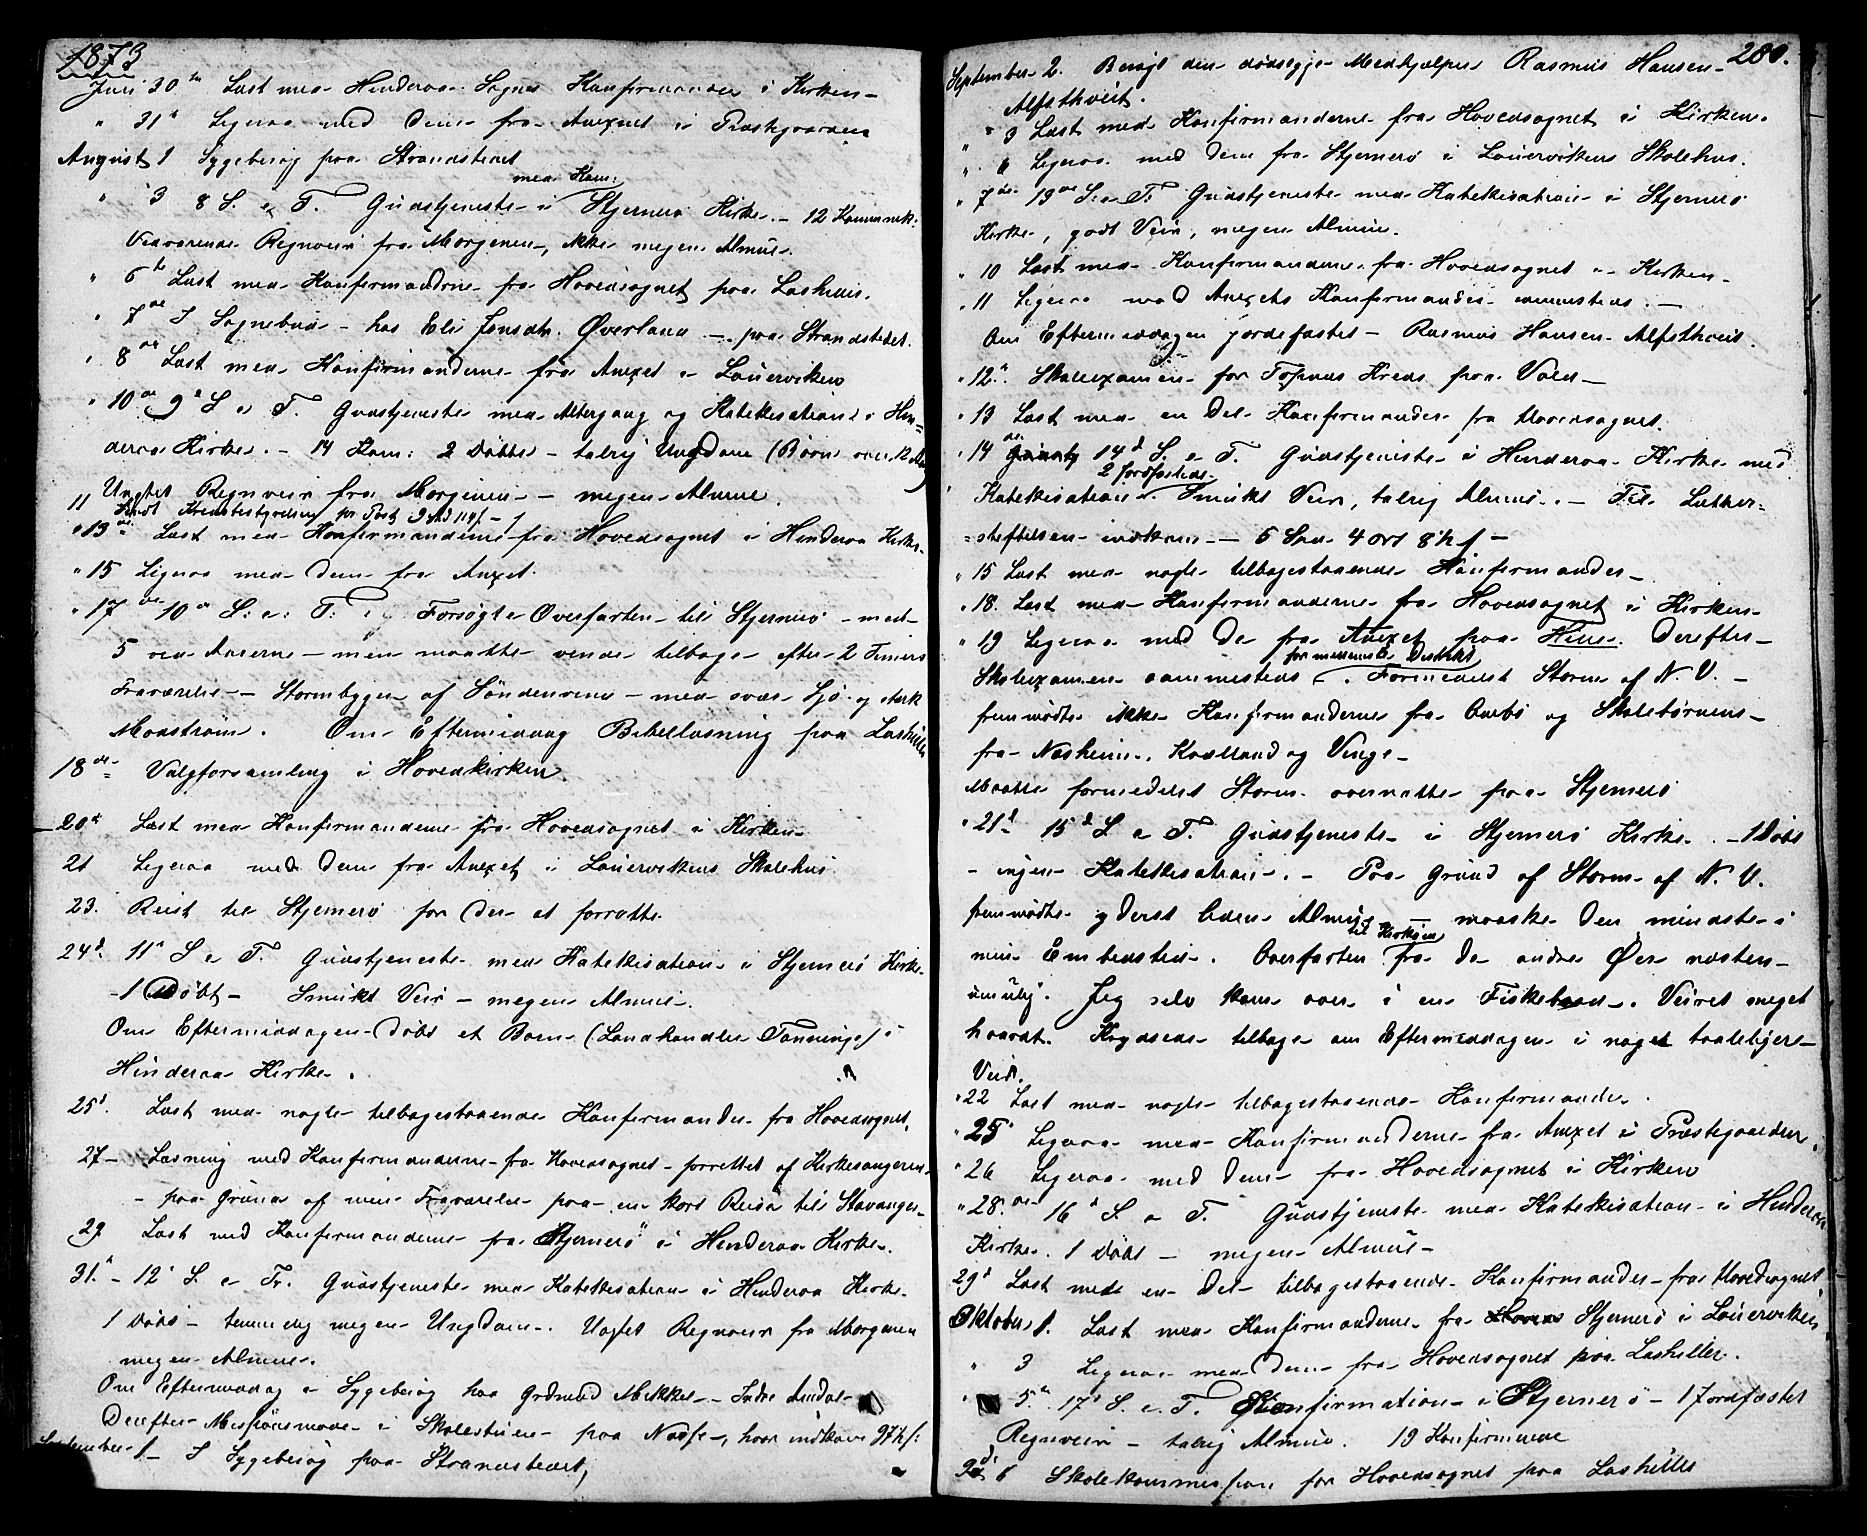 1873
Juli 30te Læst med Hinderaa Sogns Konfirmander i Kirken
" 31te Ligesaa med dem fra Anexet i Præstegaarden
August 1 Sygebesøg paa Strandstedet
med Kom:
" 3 8 S. e. T. Gudstjeneste i Stjernerø Kirke. – 12 Kommunik:
Vedvarende Regnveir fra Morgenen, ikke megen Almue.
" 6te Læst med Konfirmanderne fra Hovedsognet paa
" 7de I Sognebud – hos Eli Jonsdtr. Øverland – paa Strandstedet.
" 8de Læst med Konfirmanderne fra Anexet i Løuerviken
" 10de 9de S. e. T. Gudstjeneste med Altergang og Katekisation i Hin-
deraa Kirke. – 14 Kom: 2 Døbte – talrig Ungdom (Børn over 12 Aar)
Regnveir fra Morgenen – megen Almue.
11 Sendt
" 13de Læst med Konfirmanderne fra Hovedsognet i Hinderaa Kirke.
" 15 Ligesaa med dem fra Anexet.
" 17de 10de S: e: T: Forsøgte Overfarten til Stjernerø – med
5 ved Aarerne – men maatte vende tilbage efter 2 Timers
Fraværelse – Stormbyger af Søndenvind – med svær Sjø og stærk
Modstrøm. Om Eftermiddag Bibellæsning paa
18de Valgforsamling i Hovedkirken.
20de Læst med Konfirmanderne fra Hovedsognet i Kirken
21 Ligesaa med dem fra Anexet i Løuervikens Skolehus
23. Reist til Stjernerø for der at forrette
24d. 11te S. e. T. Gudstjeneste med Katekisation i Stjernerø Kirke.
– 1 Døbt – Smukt Veir – megen Almue.
Om Eftermiddagen døbt et Barn (Landhandler Tanninge) i
Hinderaa Kirke.
25d. Læst med nogle tilbagestaaende Konfirmander fra Hovedsognet.
27 – Læsning med Konfirmanderne fra Hovedsognet forrettet af Kirkesangeren
– paa Grund af min Fraværelse paa en kort Reise til Stavanger.
29 Læst med Konfirmanderne fra Stjernerø i Hinderaa Kirke.
31te – 12te S. e. Tr. Gudstjeneste med Katekisation i Hinderaa Kirke.
1 Døbt – temmelig megen Ungdom. Regnveir fra Morgenen
megen Almue.
Om Eftermiddag i Sygebesøg hos Mikkel – Indre
Derefter Missionsmøde i Skolestuen paa hvor indkom
September 1 – I Sygebesøg paa Strandstedet,
280.
September 2. Besøgt den dødssyge Medhjælper Rasmus Hansen
Alfsthveit.
" 3 Læst med Konfirmanderne fra Hovedsognet i Kirken.
" 6 Ligesaa med dem fra Stjernerø i Løuervikens Skolehus.
" 7de 13de S. e. T. Gudstjeneste med Katekisation i Stjernerø
Kirke, godt Veir, megen Almue.
" 10 Læst med Konfirmanderne fra Hovedsognet i Kirken
" 11 Ligesaa med Anexets Konfirmander sammesteds. –
Om Eftermiddagen jordefæstet – Rasmus Hansen Alfsthveit.
" 12te. Skoleexamen for Kreds paa Vold –
" 13 Læst med en Del Konfirmander fra Hovedsognet.
" 14de 14d S. e. T. Gudstjeneste i Hinderaa Kirke med
2 Jordfæstede
Katekisation. Smukt Veir, talrig Almue. – Til Luther-
stiftelsen indkom – 5 Spd 4 ort 8 sk
" 15 Læst med nogle tilbagestaaende Konfirmander
" 18. Læst med Konfirmanderne fra Hovedsognet i Kirken
" 19 Ligesaa med de fra Anexet paa Derefter
for Distrikt
Skoleexamen sammesteds. Formedelst Storm af N. V. –
fremmødte ikke Konfirmanderne fra Ombo og Skolebørnene
fra Næsheim, Kvalland og Vinge –
Maatte formedelst Storm overnatte paa Stjernerø
" 21d 15d S. e. T. Gudstjeneste i Stjernerø Kirke. – 1 Døbt
– ingen Katekisation. – Paa Grund af Storm af N. V.
fremmødte yderst liden Almue – maaske den mindste i
til Kirken
min Embedstid. Overfarten fra de andre Øer næsten
umulig. Jeg selv kom over i en Fiskebaad. Veiret meget
haardt. Krydsede tilbage om Eftermiddagen i noget taaleligere
Veir.
" 22 Læst med nogle tilbagestaaende Konfirmander.
" 25 Ligesaa med Konfirmanderne fra Anexet i Præstegaarden.
" 26 Ligesaa med dem fra Hovedsognet i Kirken
" 28de 16d S. e. T. Gudstjeneste med Katekisation i Hinderaa
Kirke. 1 Døbt – megen Almue –
29d Læst med en Del tilbagestaaende Konfirmander fra Hovedsognet
Oktober 1. Læst med Konfirmanderne fra Stjernerø i Løuerviken
" 3 Ligesaa med dem fra Hovedsognet paa
5te 17de S. e. T. Konfirmation i Stjernerø – 1 Jordfæstet
Regnveir – talrig Almue. 19 Konfirmerede
6 Skolekommission for Hovedsognet paa